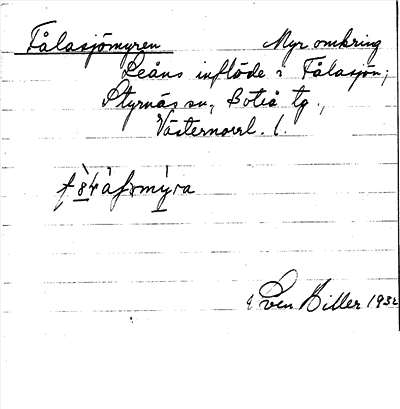 Fålasjömyren Myr omkring
Leåns inflöde i Fålasjön;
Styrnäs sn, Boteå tg.,
Västernorrl. l.
Sven Hiller 1932